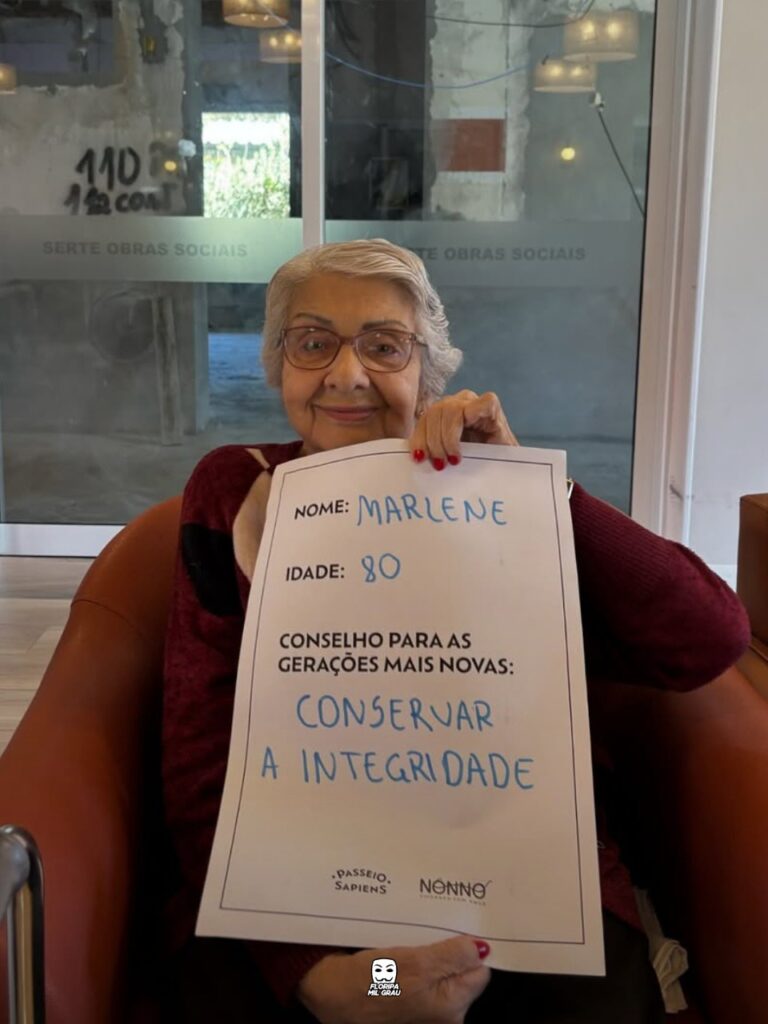 110
SERTE OBRAS SOCIAIS
TE OBRAS SOCIAIS
NOME: MARLENE
IDADE: 80
CONSELHO PARA AS
GERAÇÕES MAIS NOVAS:
CONSERVAR
A INTEGRIDADE
PASSEIO
SAPIENS
NONNO
FLORIPA
MIL GRAU